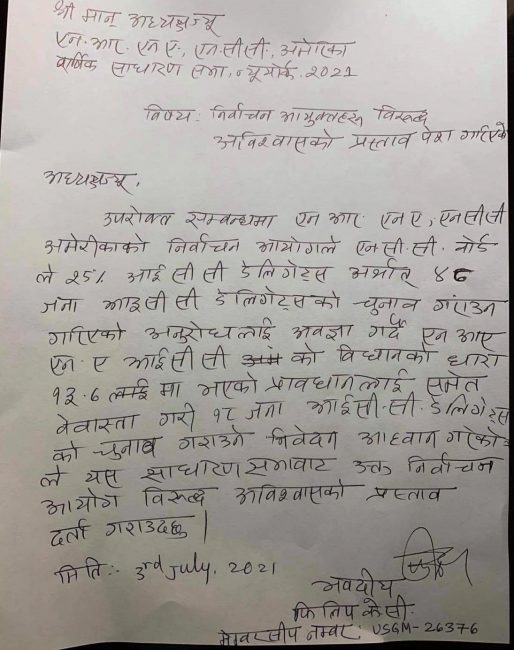 श्री मान् अध्यक्षज्यू
एन. आर. एन ए., एन.सी.सी., अमेरिका
वार्षिक साधारण सभा, न्यूयोर्क. 2021
विषय: निर्वाचन आयुक्तहरु विरूद्ध
अविश्वासको प्रस्ताव पेश गरिएको
अध्यक्षज्यू,
उपरोक्त सम्बन्धमा एन आर. एन ए, एनसीसी
अमेरीकाको निर्वाचन आयोगले एन.सी.सी. बोर्ड
ले २५% आई सी सी डेलिगेट्स अर्थात् ४८
जना आइसी सी डेलिगेट्सको चुनाव गराउन
गरिएको अनुरोधलाई अवज्ञा गर्दै एन आर
एन. ए आईसीसी को विधानको धारा
१३.६ मा भएको प्रावधानलाई समेत
वेवास्ता गरी १८ जना आई.सी.सी. डेलिगेट्स
को चुनाव गराउने निवेदन आह्वान गरेको
ले यस साधारण सभाबाट उक्त निर्वाचन
आयोग विरूद्ध अविश्वासको प्रस्ताव
दर्ता गराउदछु।
मिति:- 3rd July, 2021
भवदीय
फिलिप के.सी.
मेम्बरसीप नम्बर: USGM-26376